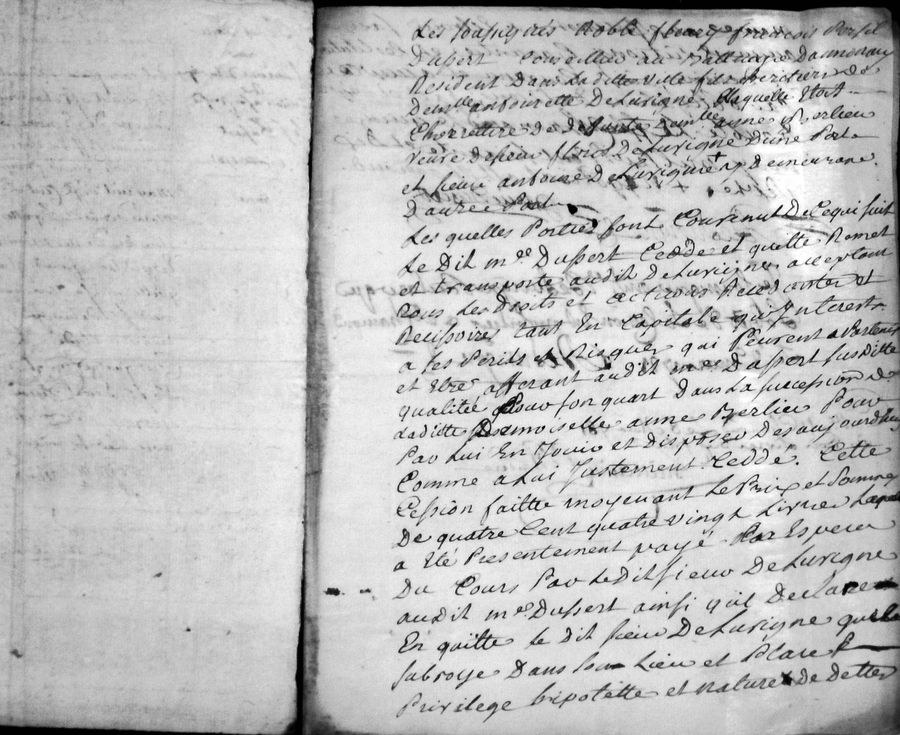 Les soussignés Noble françois
Dubert Conseiller au Balliage Dannonay
Resident Dans la ditte ville fils heretiers de
Demlle De Lusigne, Laquelle Etoit
heretiere de deffunte anne Berlieu
veuve de sieur De Lusigne D'une Part
et sieur antoine De Lusigne demeurant
D'autre Part
Les quelles Parties sont Convenus De Ce qui suit
Le Dit mre Dubert Cedde et quitte Remet
et transporte audit De Lusigne acceptant
tous les Droits et actions Recindantes et
Recissoires tant En Capitale qu'Interest
a ses Perils et Risques qui Peuvent apartenir
et Etre afferant audit mre Dubert susditte
qualité Pour son quart Dans la succession de
laditte Demoiselle anne Berlieu Pour
Par Lui En Jouir et disposer Des aujourdhuy
Comme a Lui Justement Ceddé. Cette
Cession faitte moyenant Le Prix et Somme
De quatre Cent quatre vingt Livres Laquelle
a Eté Presentement payé Par Espece
Du Cours Par Ledit sieur De Lusigne
audit mre Dubert ainsi quil Declare
En quitte le dit sieur De Lusigne que le
subroge Dans son Lieu et Place
Privilege hipotette et nature de dettes